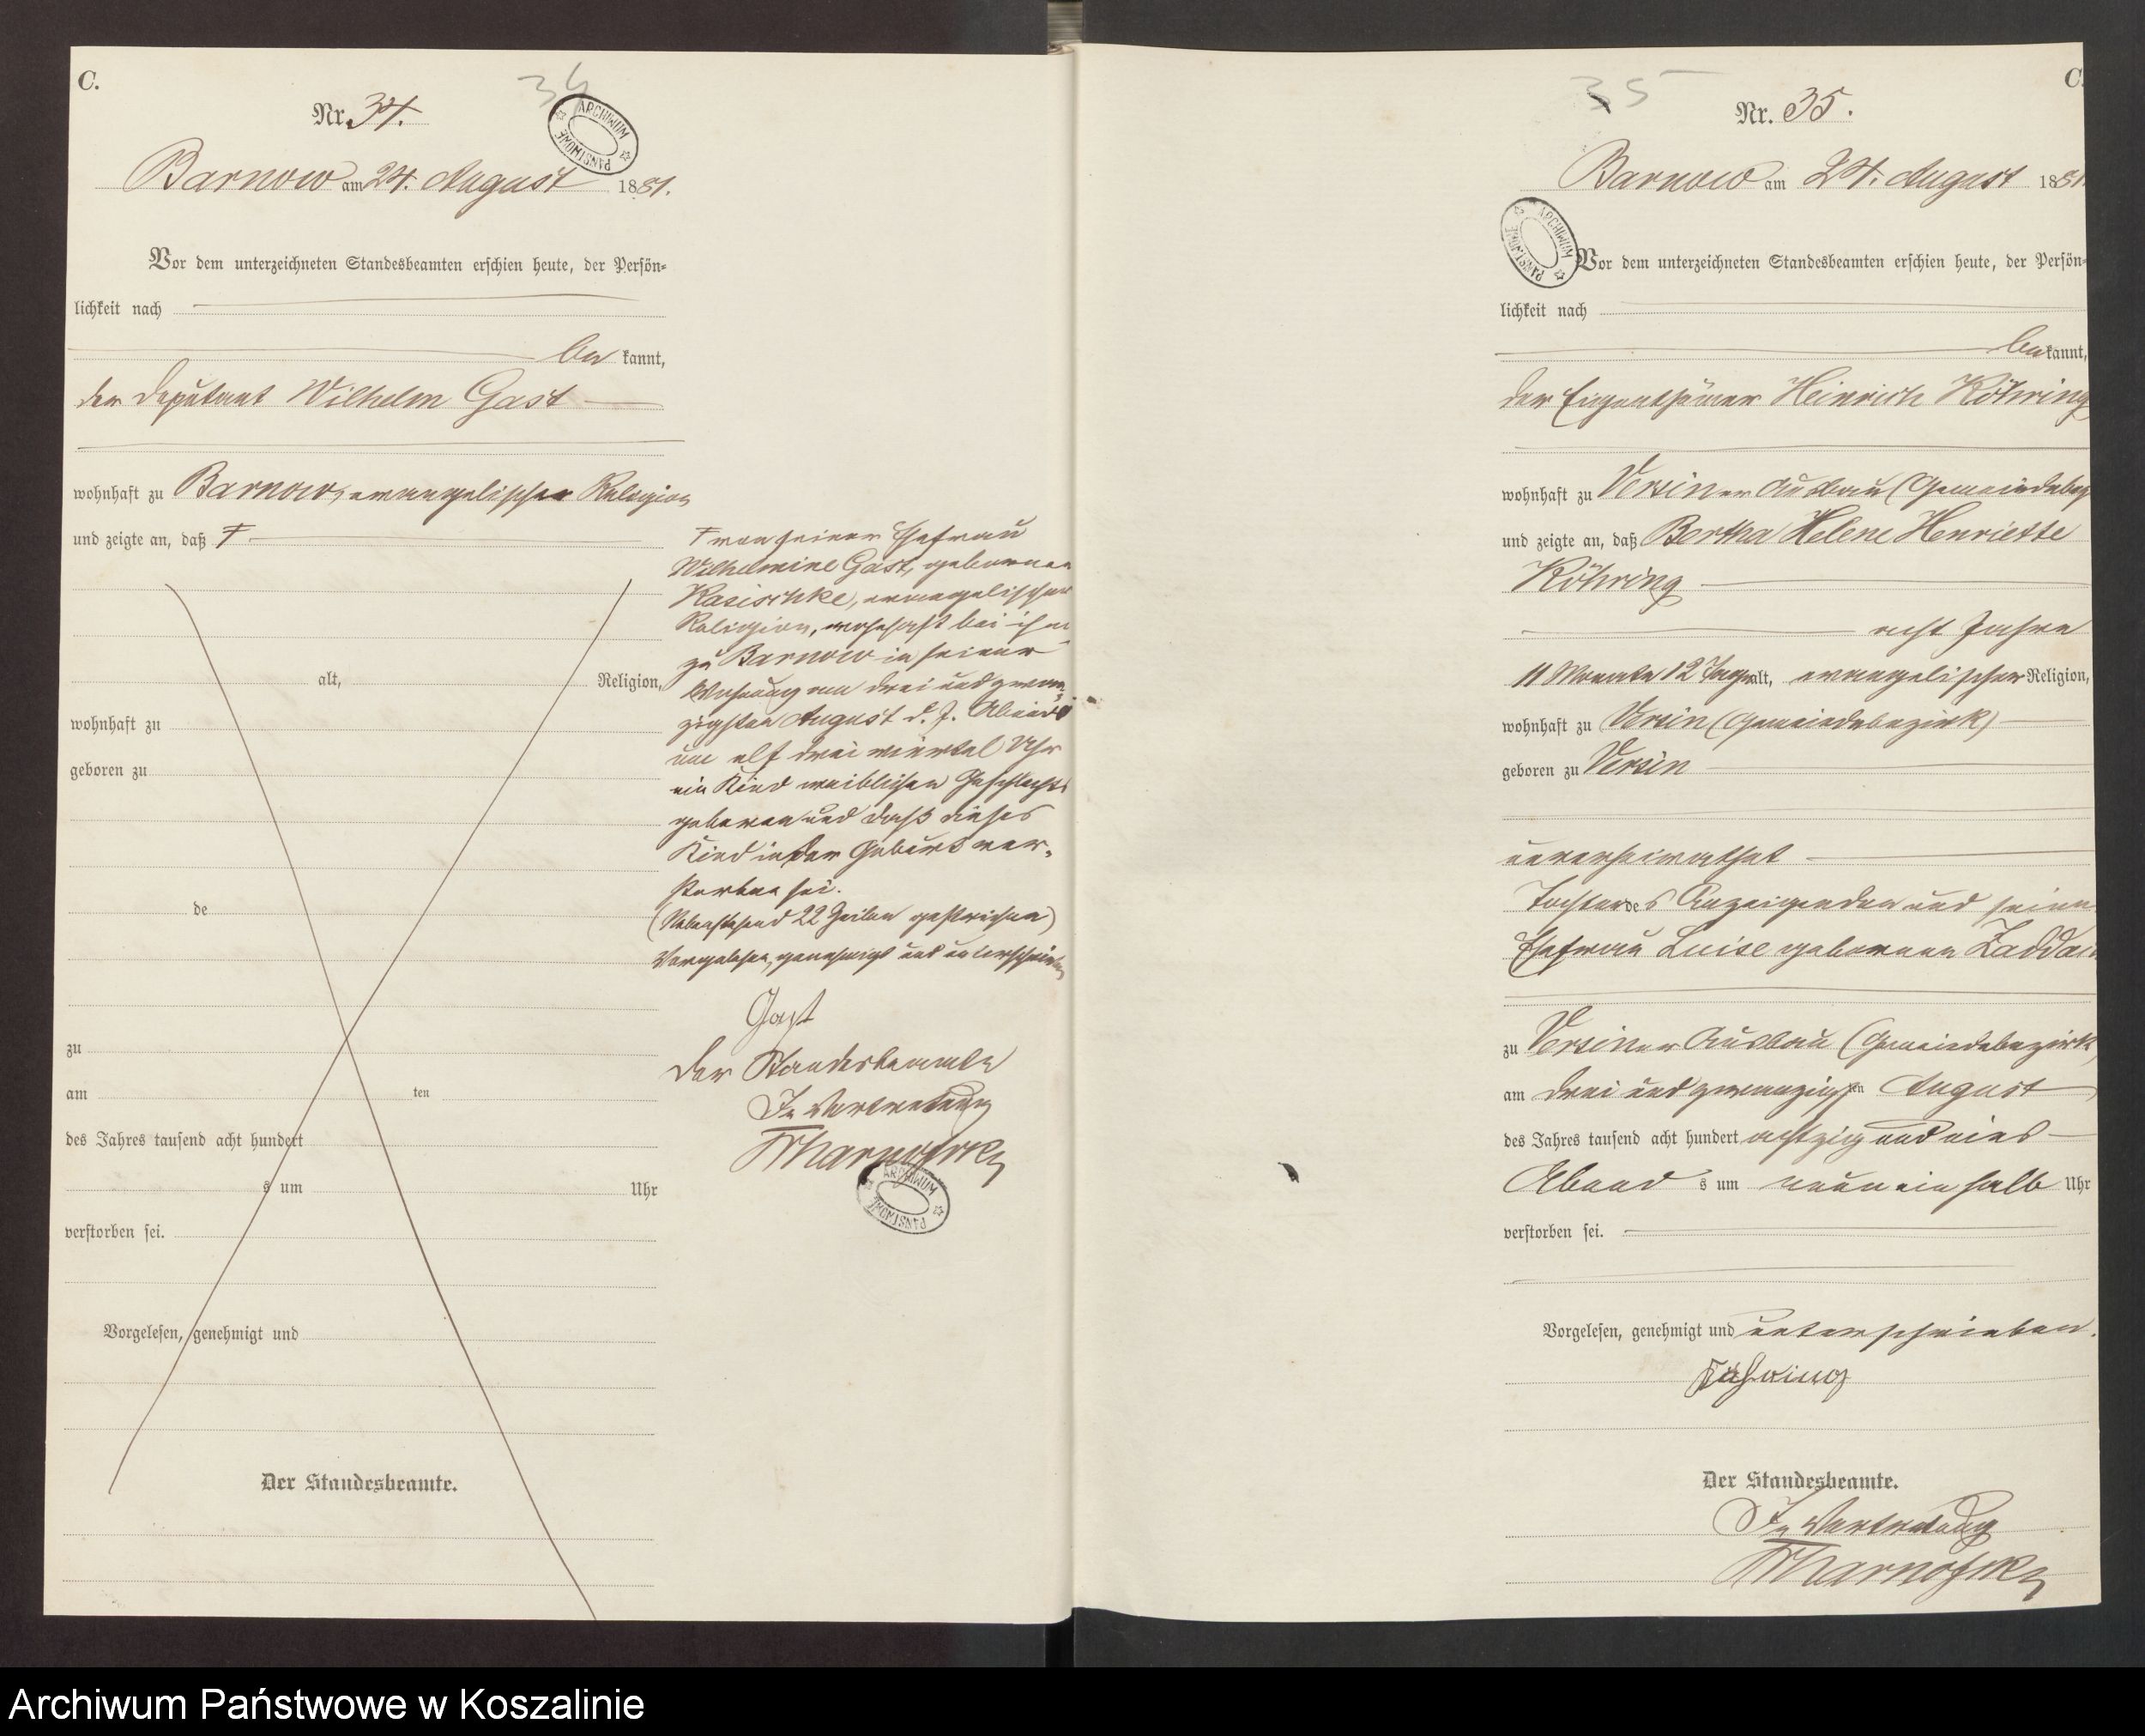 C.
34
Nr. 34.
ARCHIWUM PAŃSTWOWE
Barnow am 24. August 1881.
Vor dem unterzeichneten Standesbeamten erschien heute, der Persön-
lichkeit nach
be kannt,
der Deputant Wilhelm Gast
wohnhaft zu Barnow, evangelischer Religion
und zeigte an, daß †
† von seiner Ehefrau
Wilhelmine Gast, gebornen
Kasischke, evangelischer
Religion, wohnhaft bei ihm
zu Barnow in seiner
Wohnung am drei und zwan-
zigsten August d. J. Abends
um elf drei viertel Uhr
ein Kind weiblichen Geschlechts
geboren und daß dieses
Kind in der Geburt ver-
storben sei.
(Nebenstehend 22 Zeilen gestrichen)
Vorgelesen, genehmigt und unterschrieben
Gast
Der Standesbeamte
In Vertretung
ARCHIWUM PAŃSTWOWE
alt, Religion,
wohnhaft zu
geboren zu
de
zu
am ten
des Jahres tausend acht hundert
s um Uhr
verstorben sei.
Vorgelesen, genehmigt und
Der Standesbeamte.
C.
35
Nr. 35.
Barnow am 24. August 1881.
ARCHIWUM PAŃSTWOWE
Vor dem unterzeichneten Standesbeamten erschien heute, der Persön-
lichkeit nach
be kannt,
der Eigenthümer Heinrich Röhring
wohnhaft zu Versiner Ausbau (Gemeindebez
und zeigte an, daß Bertha Helene Henriette
Röhring
acht Jahre
11 Monate 12 Tage alt, evangelischer Religion,
wohnhaft zu Versin (Gemeindebezirk)
geboren zu Versin
unverheirathet
Tochter des Anzeigenden und seiner
Ehefrau Luise gebornen
zu Versiner Ausbau (Gemeindebezirk)
am drei und zwanzigsten August
des Jahres tausend acht hundert achtzig und eins
Abend s um neun ein halb Uhr
verstorben sei.
Vorgelesen, genehmigt und unterschrieben.
Röhring
Der Standesbeamte.
In Vertretung
Archiwum Państwowe w Koszalinie